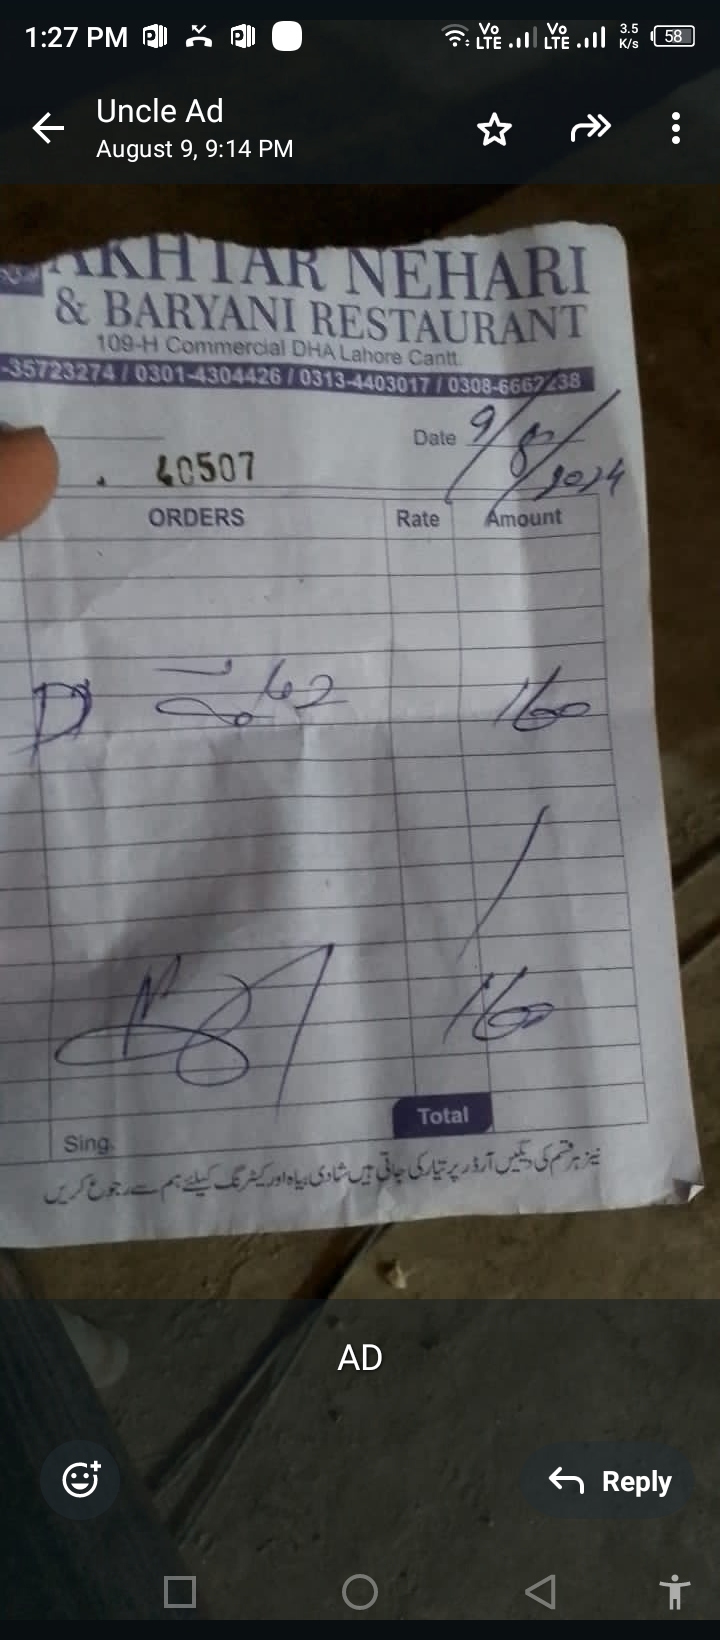 1:27 PM
Vo LTE Vo LTE 3.5 K/s 58
Uncle Ad
August 9, 9:14 PM
AKHTAR NEHARI
& BARYANI RESTAURANT
109-H Commercial DHA Lahore Cantt.
-35723274 / 0301-4304426 / 0313-4403017 / 0308-6662238
Date 9/8/2024
40507
ORDERS Rate Amount
D 160
160
Total
Sing.
نیز ہر قسم کی دیگیں آرڈر پر تیار کی جاتی ہیں شادی بیاہ اور کیٹرنگ کیلئے ہم سے رجوع کریں
AD
Reply